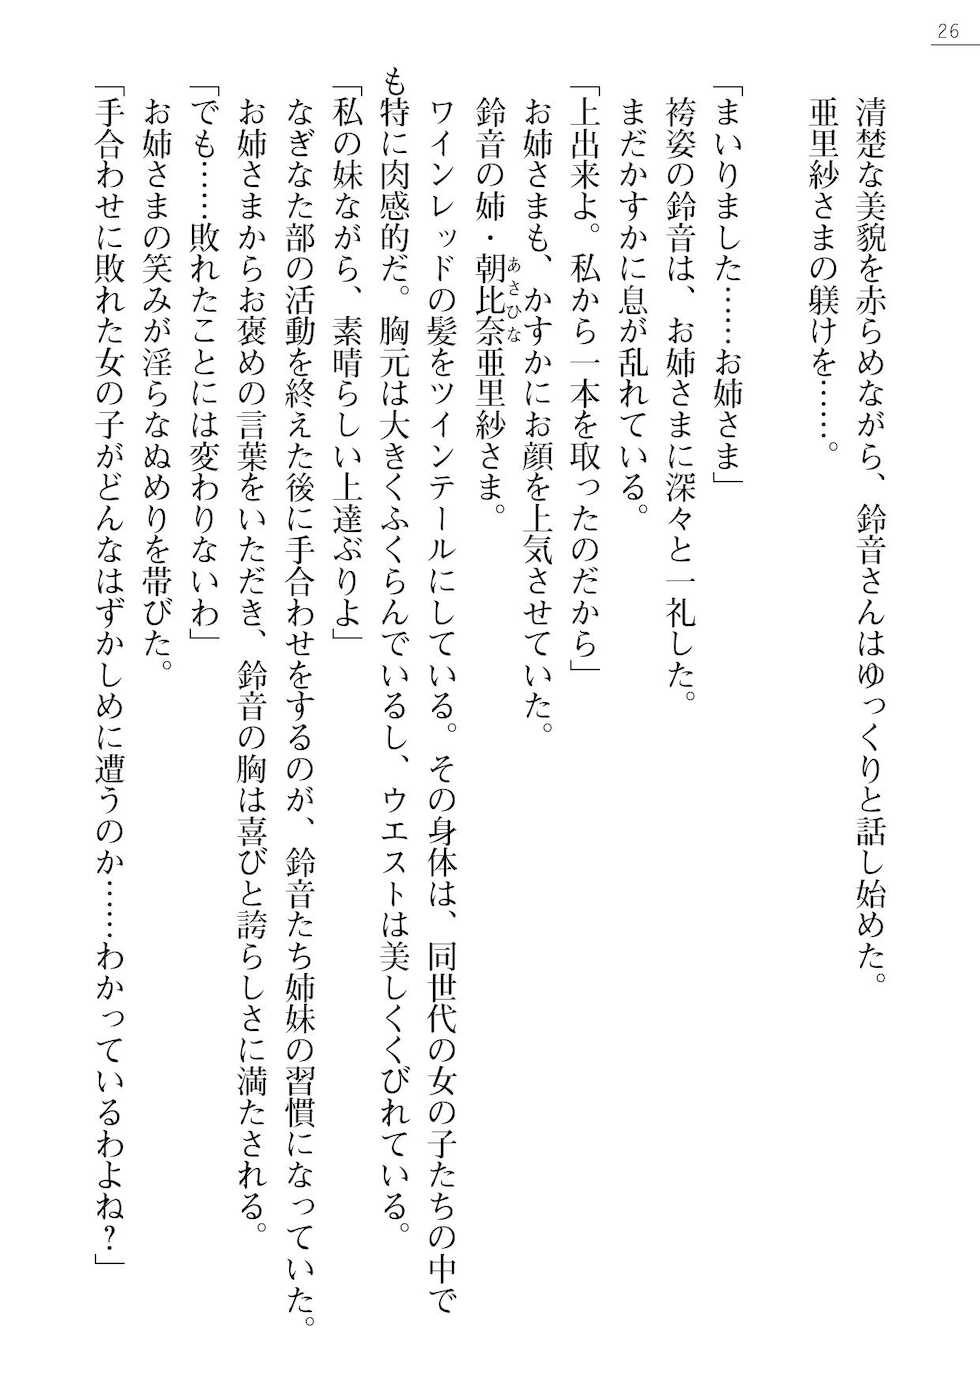 26
清楚な美貌を赤らめながら、鈴音さんはゆっくりと話し始めた。
亜里紗さまの躾けを……。
「まいりました……お姉さま」
袴姿の鈴音は、お姉さまに深々と一礼した。
まだかすかに息が乱れている。
「上出来よ。私から一本を取ったのだから」
お姉さまも、かすかにお顔を上気させていた。
鈴音の姉・朝比奈亜里紗さま。
あさひな
ワインレッドの髪をツインテールにしている。その身体は、同世代の女の子たちの中で
も特に肉感的だ。胸元は大きくふくらんでいるし、ウエストは美しくくびれている。
「私の妹ながら、素晴らしい上達ぶりよ」
なぎなた部の活動を終えた後に手合わせをするのが、鈴音たち姉妹の習慣になっていた。
お姉さまからお褒めの言葉をいただき、鈴音の胸は喜びと誇らしさに満たされる。
「でも……敗れたことには変わりないわ」
お姉さまの笑みが淫らなぬめりを帯びた。
「手合わせに敗れた女の子がどんなはずかしめに遭うのか……わかっているわよね？」